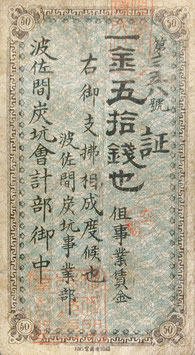 第三五八號
証
一金五拾錢也
但事業賃金
右御支拂相成度候也
波佐間炭坑事業部
波佐間炭坑會計部御中
50
50
50
50